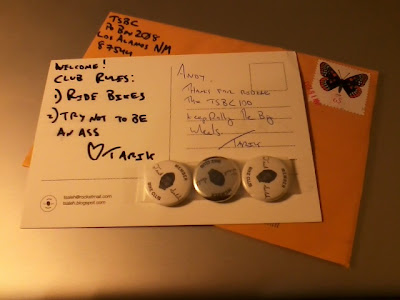 TSBC
Po Box 2038
Los Alamos NM
87544
WELCOME!
CLUB RULES:
1) RIDE BIKES
2) TRY NOT TO BE
AN ASS
TARIK
ANDY,
THANKS FOR
THE TSBC
KEEP Rolling THE Big
Wheels.
TARIK
tsaleh.blogspot.com